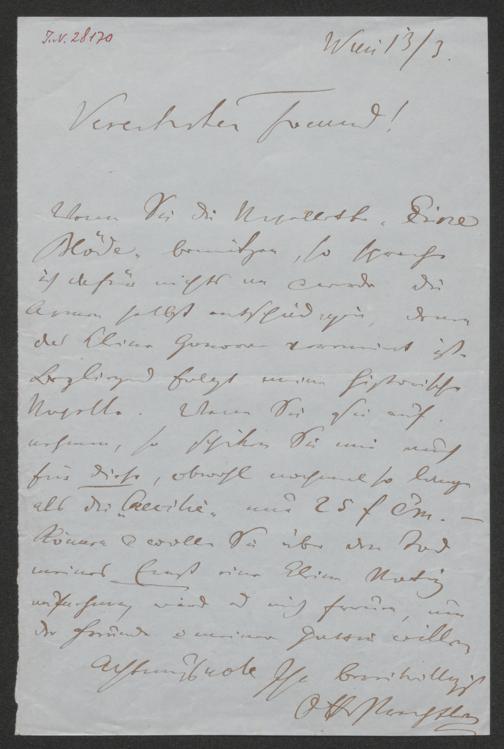 I.N. 28170
Wien 13/3.
Verehrtester Freund!
Wenn Sie die Novellette „Eine
Blöde“ benützen, so spreche
ich dafür nichts an werde die
Armen selbst entschädigen, denen
das kleine Honorar
Beyliegend folgt meine historische
Novelle. Wenn Sie sie auf-
nehmen, so schiken Sie mir auch
für diese, obwohl nochmal so lang
als die „Caecilie“ nur 25 f CM. —
Können & wollen Sie über den Tod
meines Ernst eine kleine Notiz
aufnehmen, würde es mich freuen, um
der Freunde & meiner willen
Achtungsvoll Ihr bereitwilligst
Otto